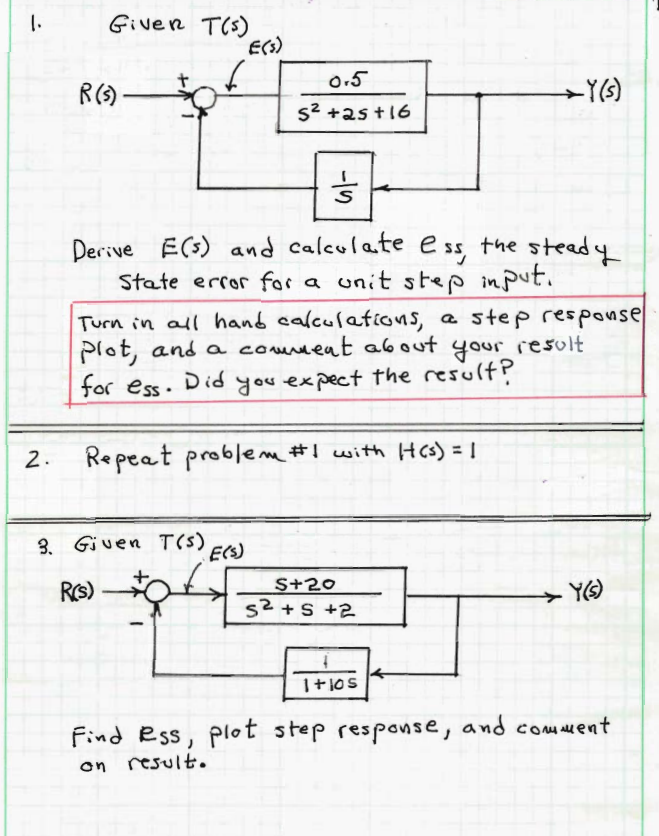 1. Given T(s)
E(s)
R(s) + 0.5 / s² + 2s + 16 Y(s)
−
1/s
Derive E(s) and calculate ess, the steady
state error for a unit step input.
Turn in all hand calculations, a step response
plot, and a comment about your result
for ess. Did you expect the result?
2. Repeat problem #1 with H(s) = 1
3. Given T(s)
E(s)
R(s) + s+20 / s² + s + 2 Y(s)
−
1 / 1+10s
Find ess, plot step response, and comment
on result.